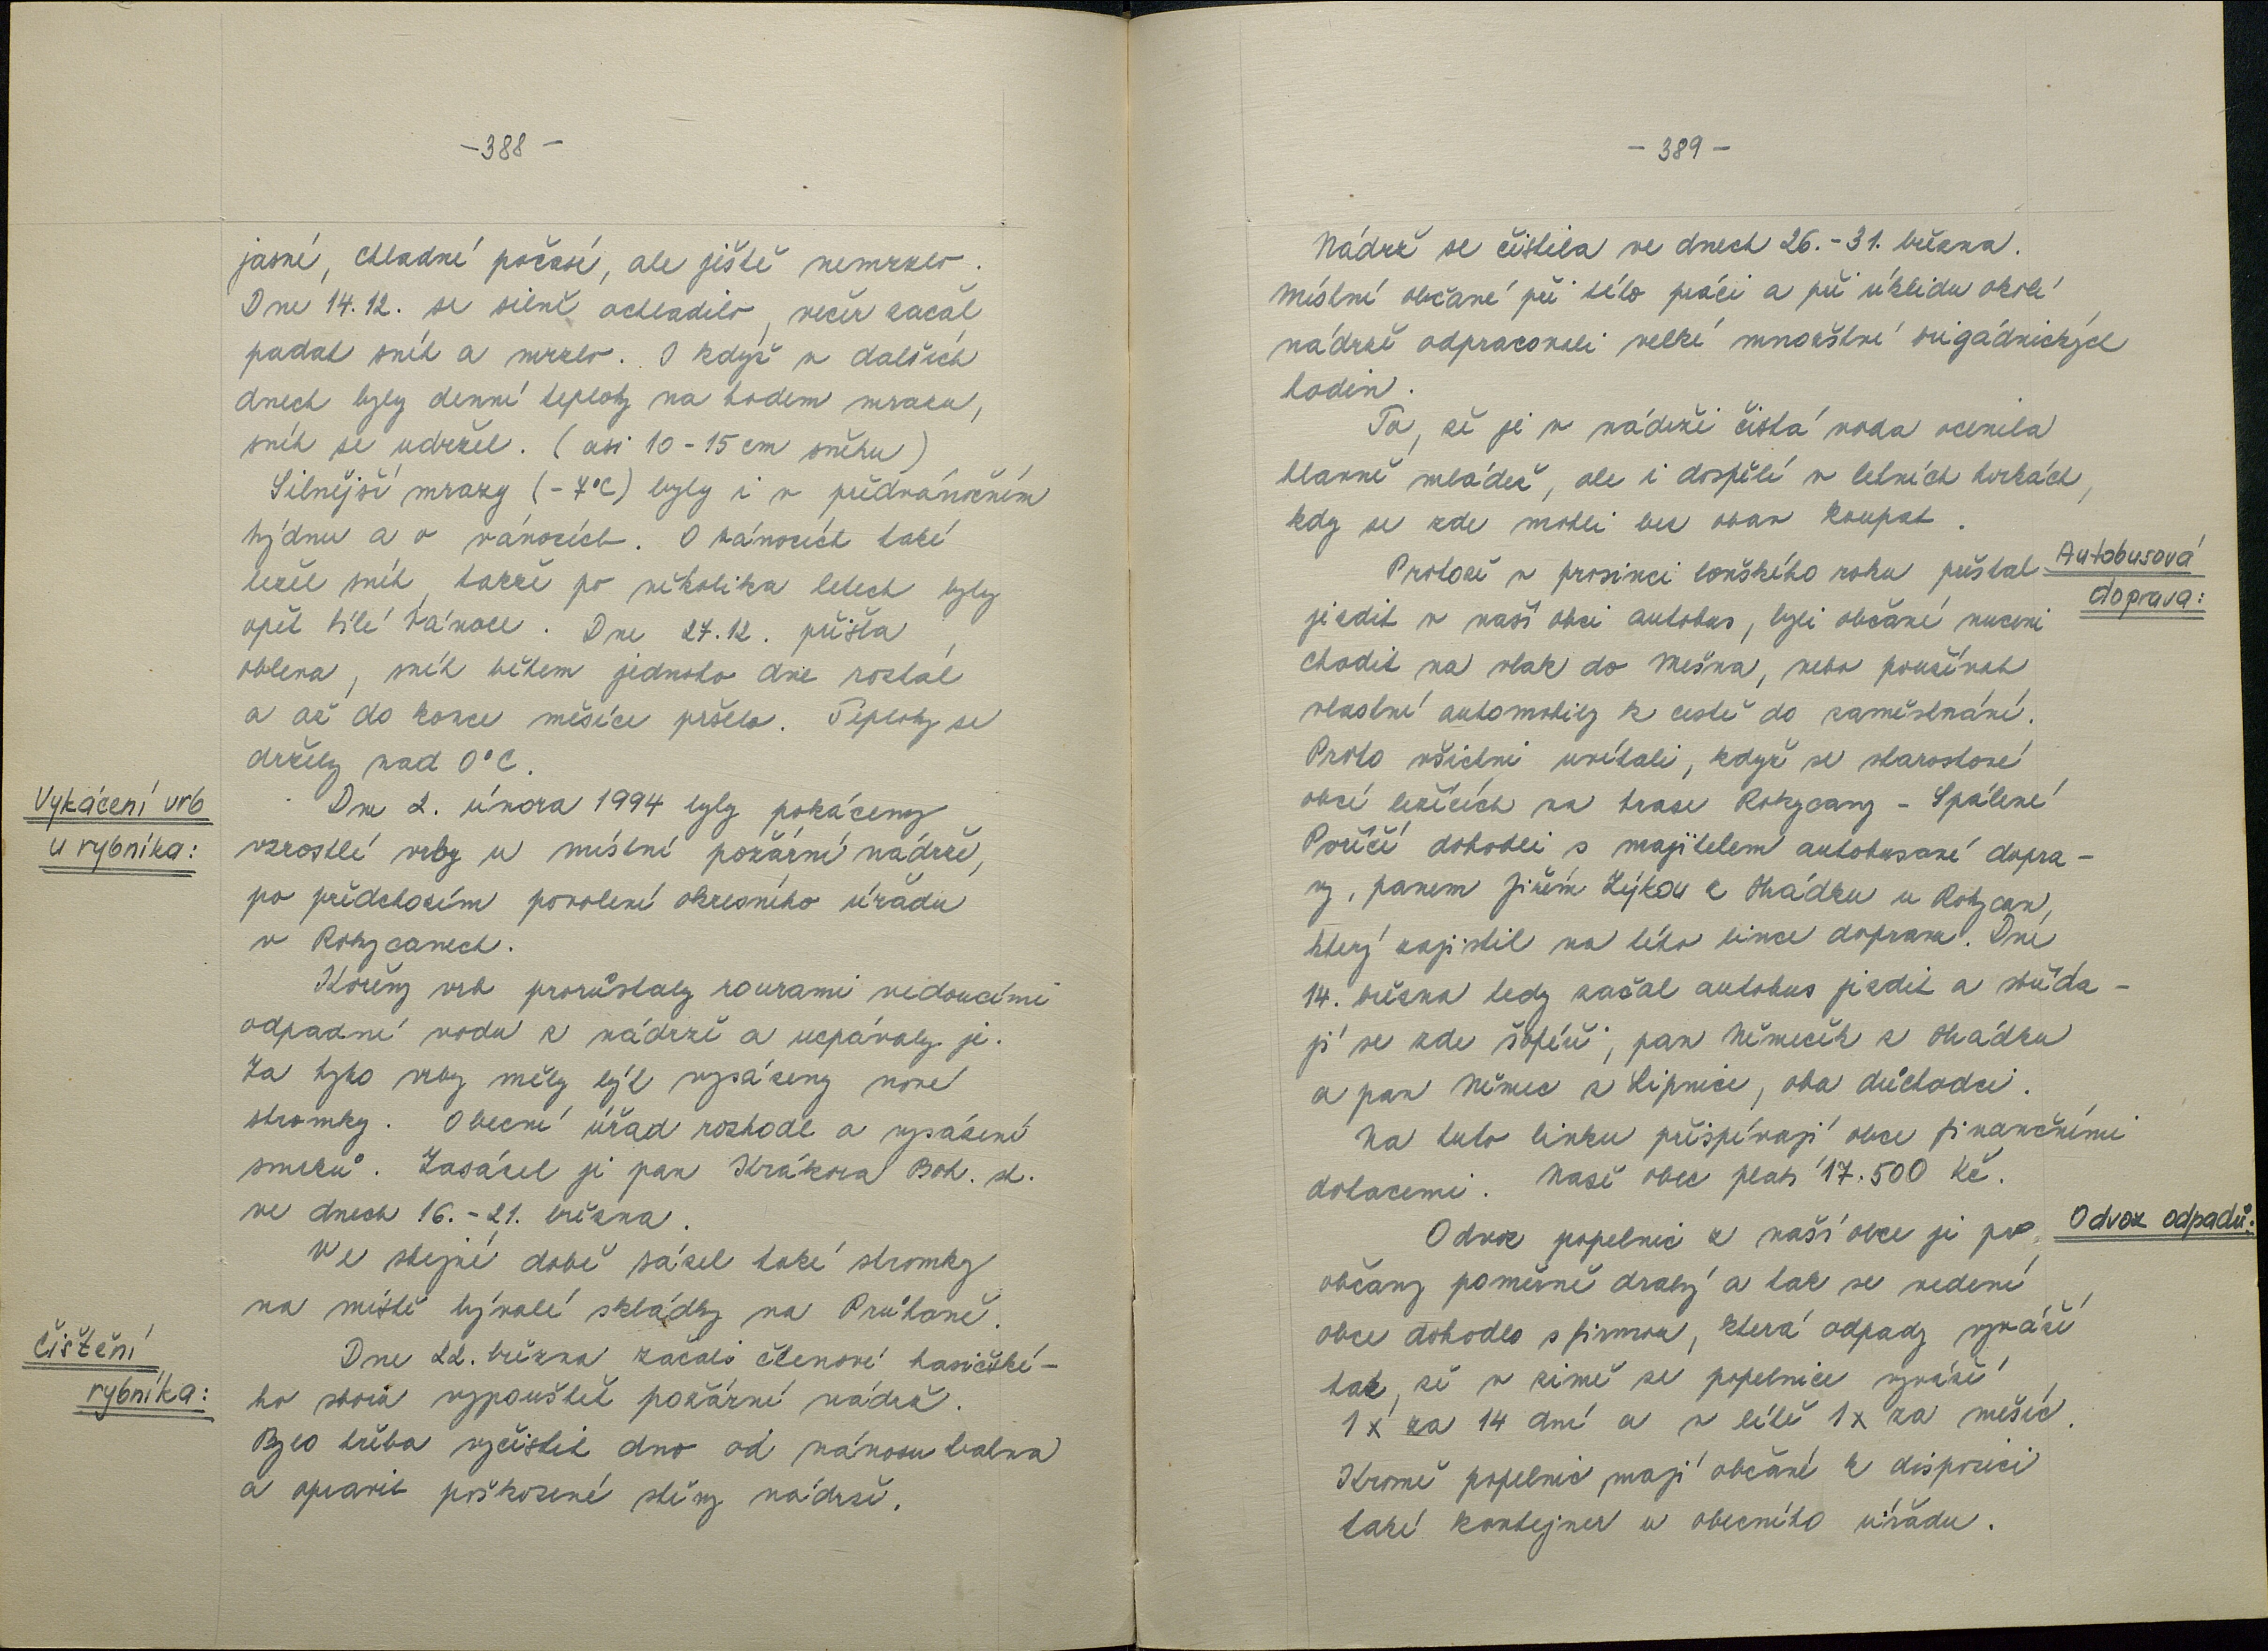 -388-
jasné, chladné počasí, ale ještě nemrzlo.
Dne 14.12. se silně ochladilo, večer začal
padat sníh a mrzlo. I když v dalších
dnech byly denní teploty na bodem mrazu,
sníh se udržel. (asi 10-15 cm sněhu)
Silnější mrazy (-7°C) byly i v předvánočním
týdnu a o vánocích. O vánocích také
ležel sníh, takže po několika letech byly
opět bílé Vánoce. Dne 27.12. přišla
obleva, sníh během jednoho dne roztál
a až do konce měsíce pršelo. Teploty se
držely nad 0°C.
Vykácení vrb
u rybníka:
Dne 2. února 1994 byly pokáceny
vzrostlé vrby u místní požární nádrže,
po předchozím povolení okresního úřadu
v Rokycanech.
Kořeny vrb prorůstaly rourami vedoucími
odpadní vodu z nádrže a ucpávaly je.
Za tyto vrby měly být vysázeny nové
stromky. Obecní úřad rozhodl o vysázení
smrků. Zasázel je pan Krákora Boh. st.
ve dnech 16.-21. března.
Ve stejné době sázel také stromky
na místě bývalé skládky na Průhoně.
Čištění
rybníka:
Dne 22. března začali členové hasičské-
ho sboru vypouštět požární nádrž.
Bylo třeba vyčistit dno od nánosu bahna
a opravit poškozené stěny nádrže.
- 389 -
Nádrž se čistila ve dnech 26.-31. března.
Místní občané při této práci a při úklidu okolí
nádrže odpracovali velké množství brigádnických
hodin.
To, že je v nádrži čistá voda ocenila
hlavně mládež, ale i dospělí v letních horkách,
kdy se zde mohli bez obav koupat.
Autobusová
doprava:
Protože v prosinci loňského roku přestal
jezdit v naší obci autobus, byli občané nuceni
chodit na vlak do Mešna, nebo používat
vlastní automobily k cestě do zaměstnání.
Proto všichni uvítali, když se starostové
obcí ležících na trase Rokycany - Spálené
Poříčí dohodli s majitelem autobusové dopra-
vy, panem Jiřím Zýkou z Hrádku u Rokycan,
který zajistil na této lince dopravu. Dne
14. března tedy začal autobus jezdit a střída-
jí se zde šoféři, pan Němeček z Hrádku
a pan Němec z Lipnice, oba důchodci.
Na tuto linku přispívají obce finančními
dotacemi. Naše obec platí 17.500 Kč.
Odvoz odpadů:
Odvoz popelnic z naší obce je pro
občany poměrně drahý a tak se vedení
obce dohodlo s firmou, která odpady vyváží
tak, že v zimě se popelnice vyváží
1x za 14 dní a v létě 1x za měsíc.
Kromě popelnic mají občané k dispozici
také kontejner u obecního úřadu.